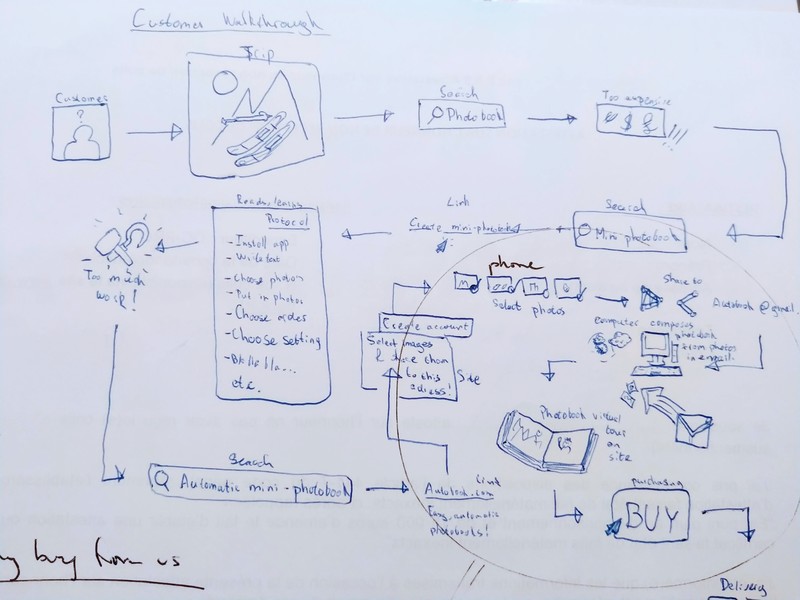 Customer Walkthrough
Customer
?
Trip
Search
Photobook
Too expensive
$ $
Link
Create mini-photobook
Search
Mini photobook
Too much
work!
Protocol
- Install app
- Write text
- Choose photos
- Put in photos
- Choose order
- Choose setting
- Bla bla bla...
etc.
phone
Select photos
Share to
Autobook @ gmail.
Computer composes
photobook
from photos
in email.
Create account
Select images
& share them
to this
adress!
Site
Photobook virtual
tour
on
site
Search
Automatic mini-photobook
Link
Autobook.com
Easy, automatic
photobooks!
purchasing
BUY
buy from us
Delivery